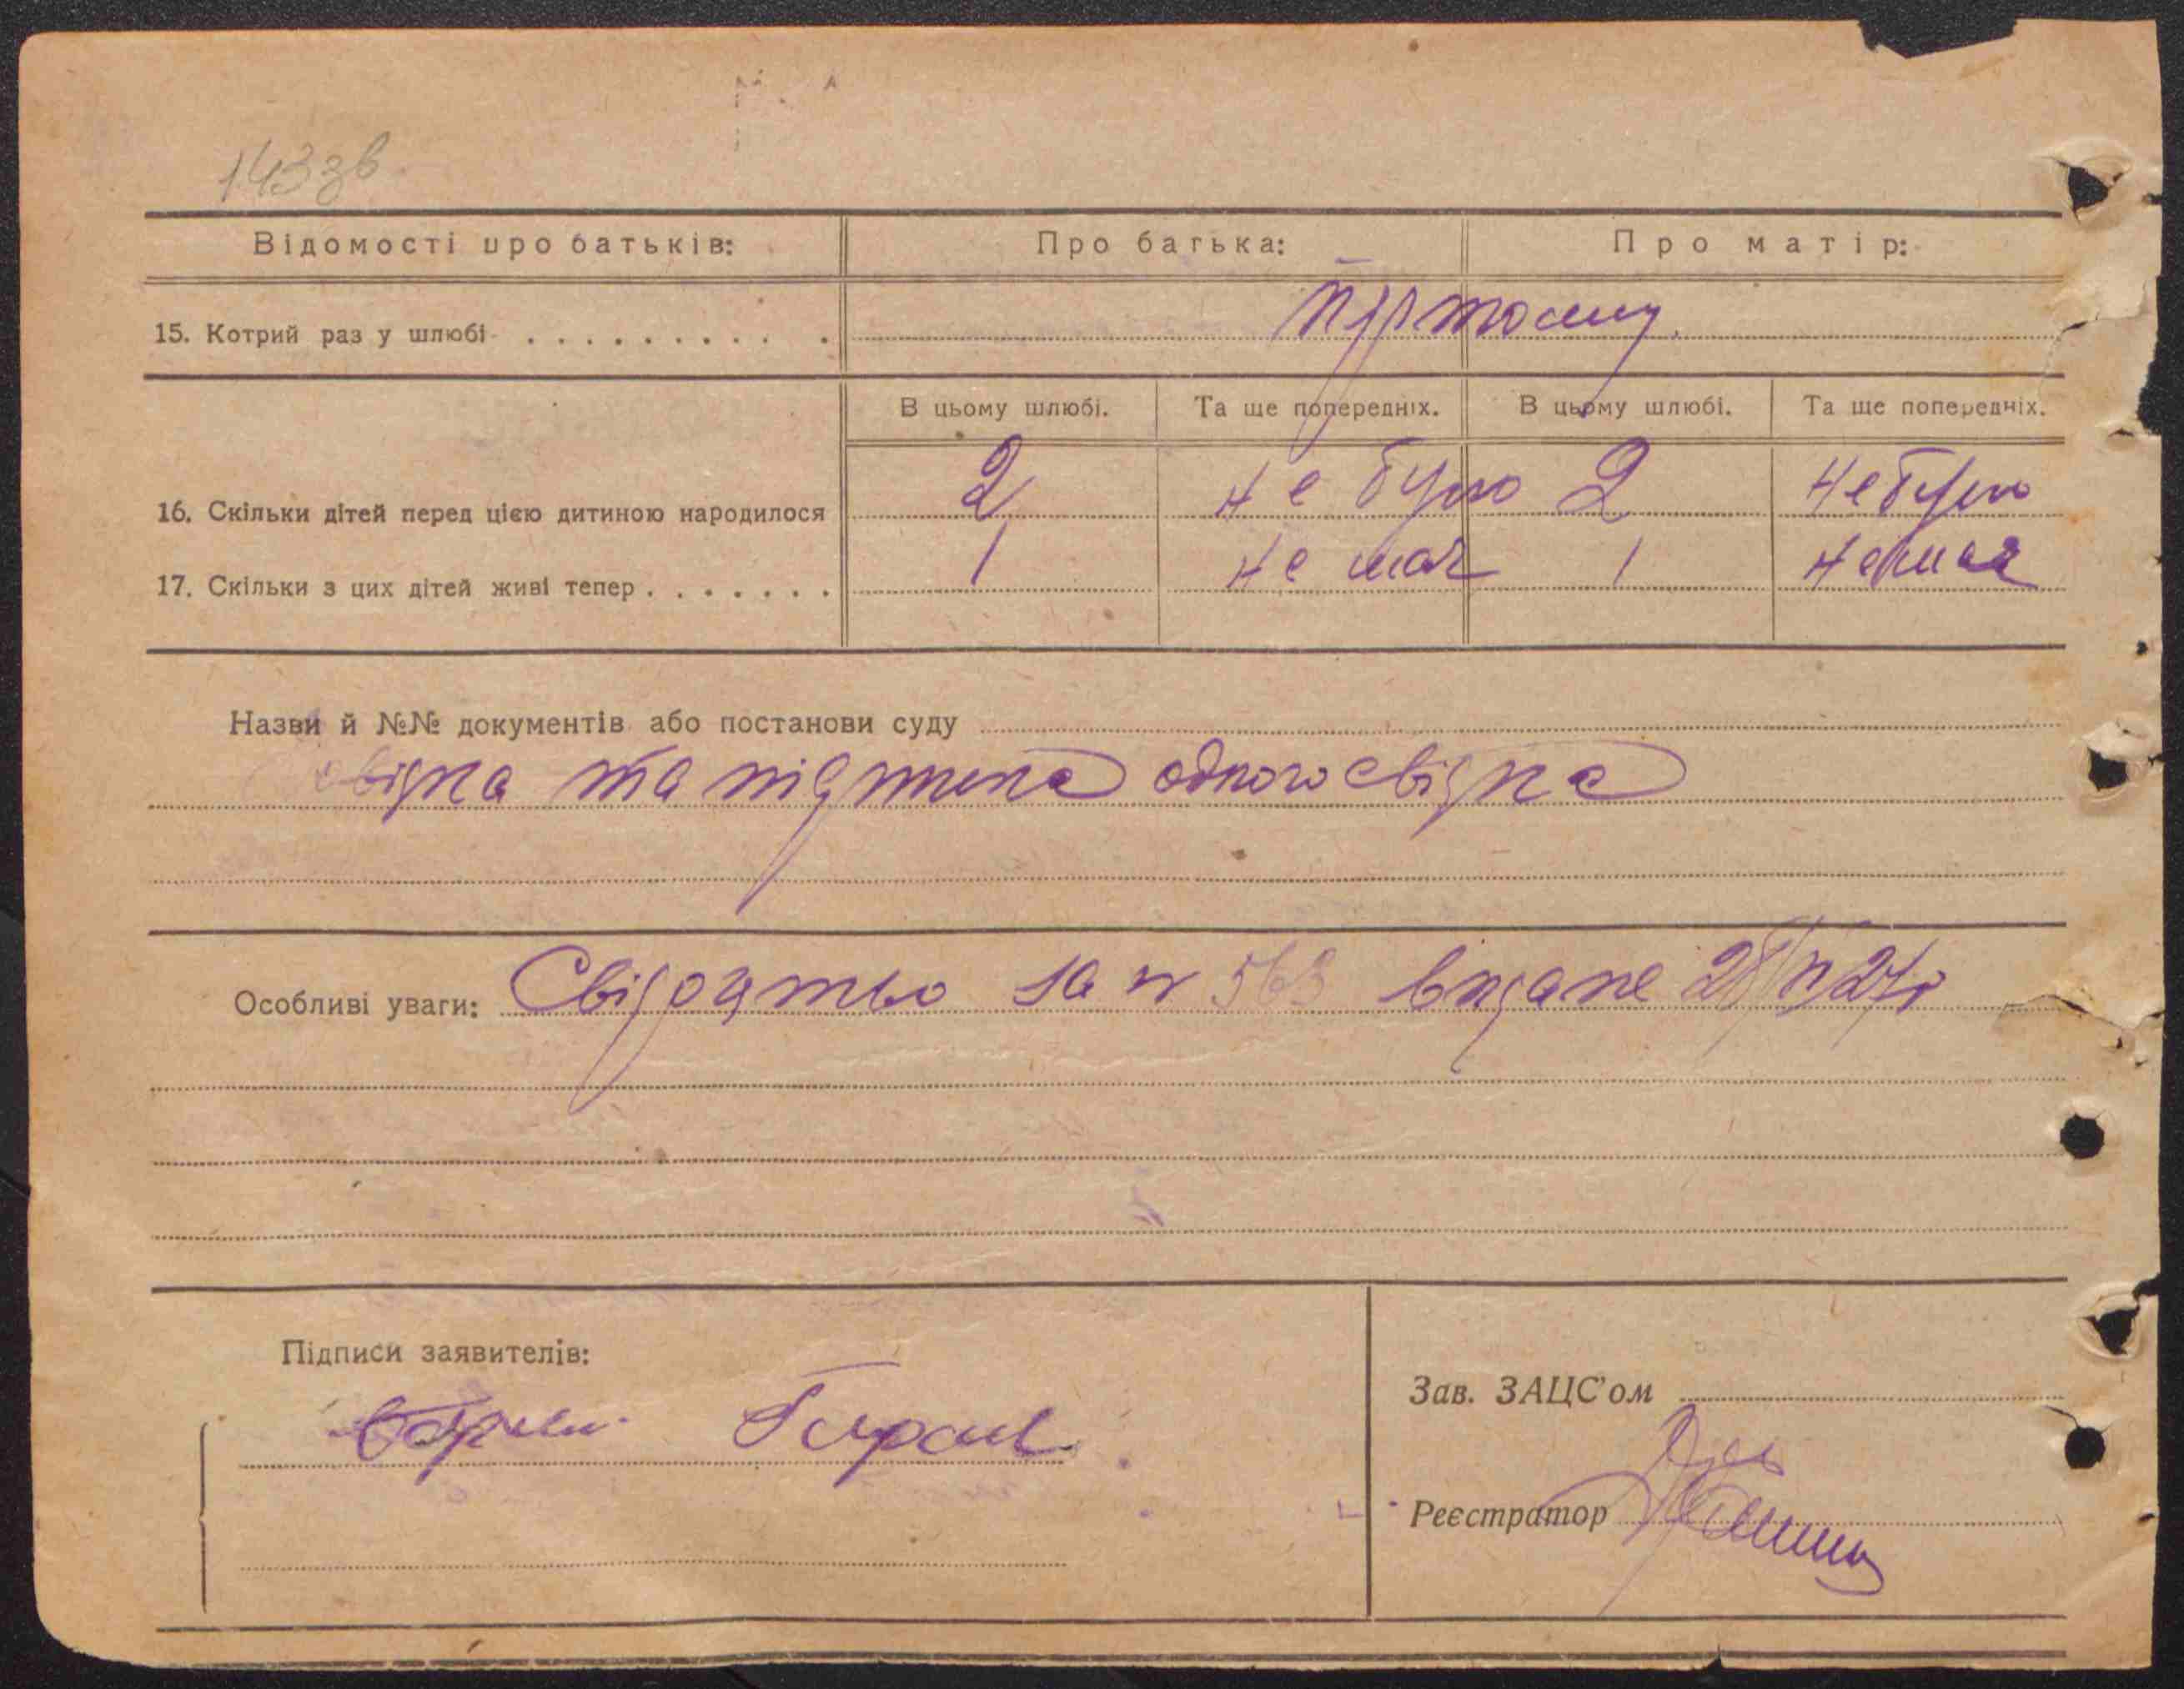 143 зв
Відомості про батьків: Про батька: Про матір:
15. Котрий раз у шлюбі . . . . . . . . . . .
В цьому шлюбі. Та ще попередніх. В цьому шлюбі. Та ще попередніх.
16. Скільки дітей перед цією дитиною народилося 2 не було 2 не було
17. Скільки з цих дітей живі тепер . . . . . . . 1 не має 1 немає
Назви й №№ документів або постанови суду
та одного свідка
Особливі уваги: Свідоцтво за № 563 видане
Підписи заявителів:
Зав. ЗАЦС'ом
Реєстратор